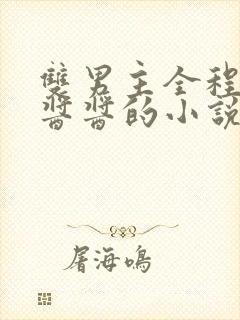 雙男主全程
醬醬的小說
屠海鳴